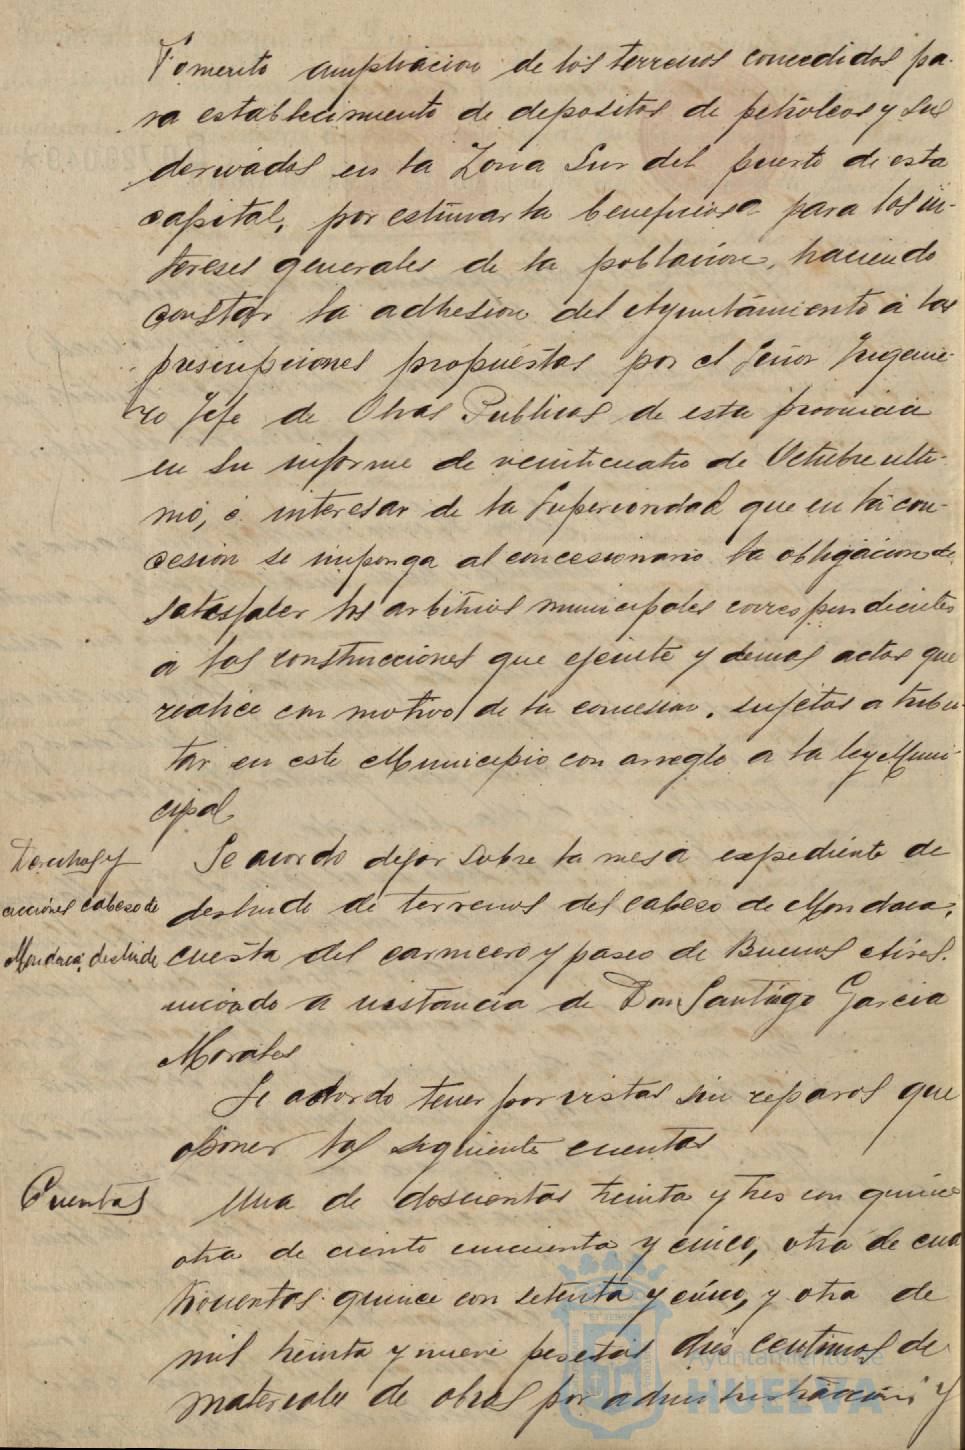 Fomento ampliacion de los terrenos concedidos pa-
ra establecimiento de depositos de petróleos y sus
derivados en la Zona Sur del puerto de esta
capital, por estimarla beneficiosa para los in-
tereses generales de la poblacion, haciendo
constar la adhesion del Ayuntamiento á las
prescripciones propuestas por el Señor Ingenie-
ro Jefe de Obras Publicas de esta provincia
en su informe de veinticuatro de Octubre ulti-
mo, é interesar de la Superioridad que en la con-
cesion se imponga al concesionario la obligacion de
satisfacer los arbitrios municipales correspondientes
a las construcciones que ejecute y demas actos que
realice con motivo de la concesion, sujetos a tribu-
tar en este Municipio con arreglo a la ley Muni-
cipal
Derechos y
acciones cabezo de
Mondaca, deslinde
Se acordo dejar sobre la mesa expediente de
deslinde de terrenos del cabezo de Mondaca,
cuesta del carnicero y paseo de Buenos Aires,
iniciado a instancia de Don Santiago Garcia
Morales
Se acordo tener por vistas sin reparos que
oponer las siguiente cuentas
Cuentas
Una de doscientas treinta y tres con quince
otra de ciento cincuenta y cinco, otra de cua
trocientas quince con setenta y cinco, y otra de
mil treinta y nueve pesetas dies centimos de
materiales de obras por administración y
Ayuntamiento de
HUELVA